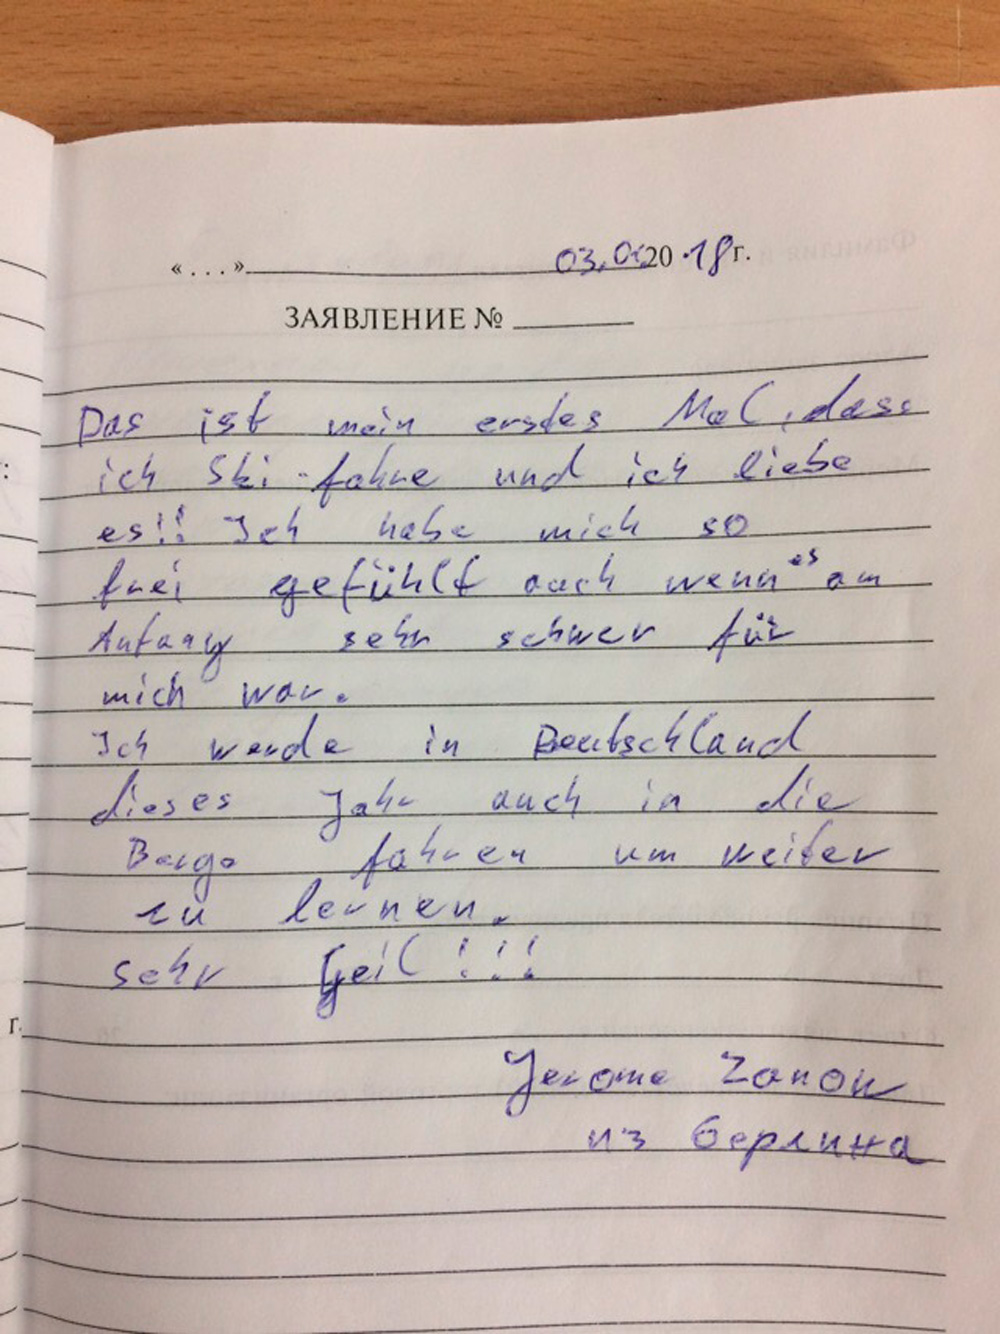 « . . . » 03.01.20 18 г.
ЗАЯВЛЕНИЕ №
Das ist mein erstes Mal, dass
ich Ski-fahre und ich liebe
es!! Ich habe mich so
frei gefühlt auch wenn es am
Anfang sehr schwer für
mich war.
Ich werde in Deutschland
dieses Jahr auch in die
Berge fahren um weiter
zu lernen.
sehr Geil!!!
Jerome Zanow
из берлина
г.